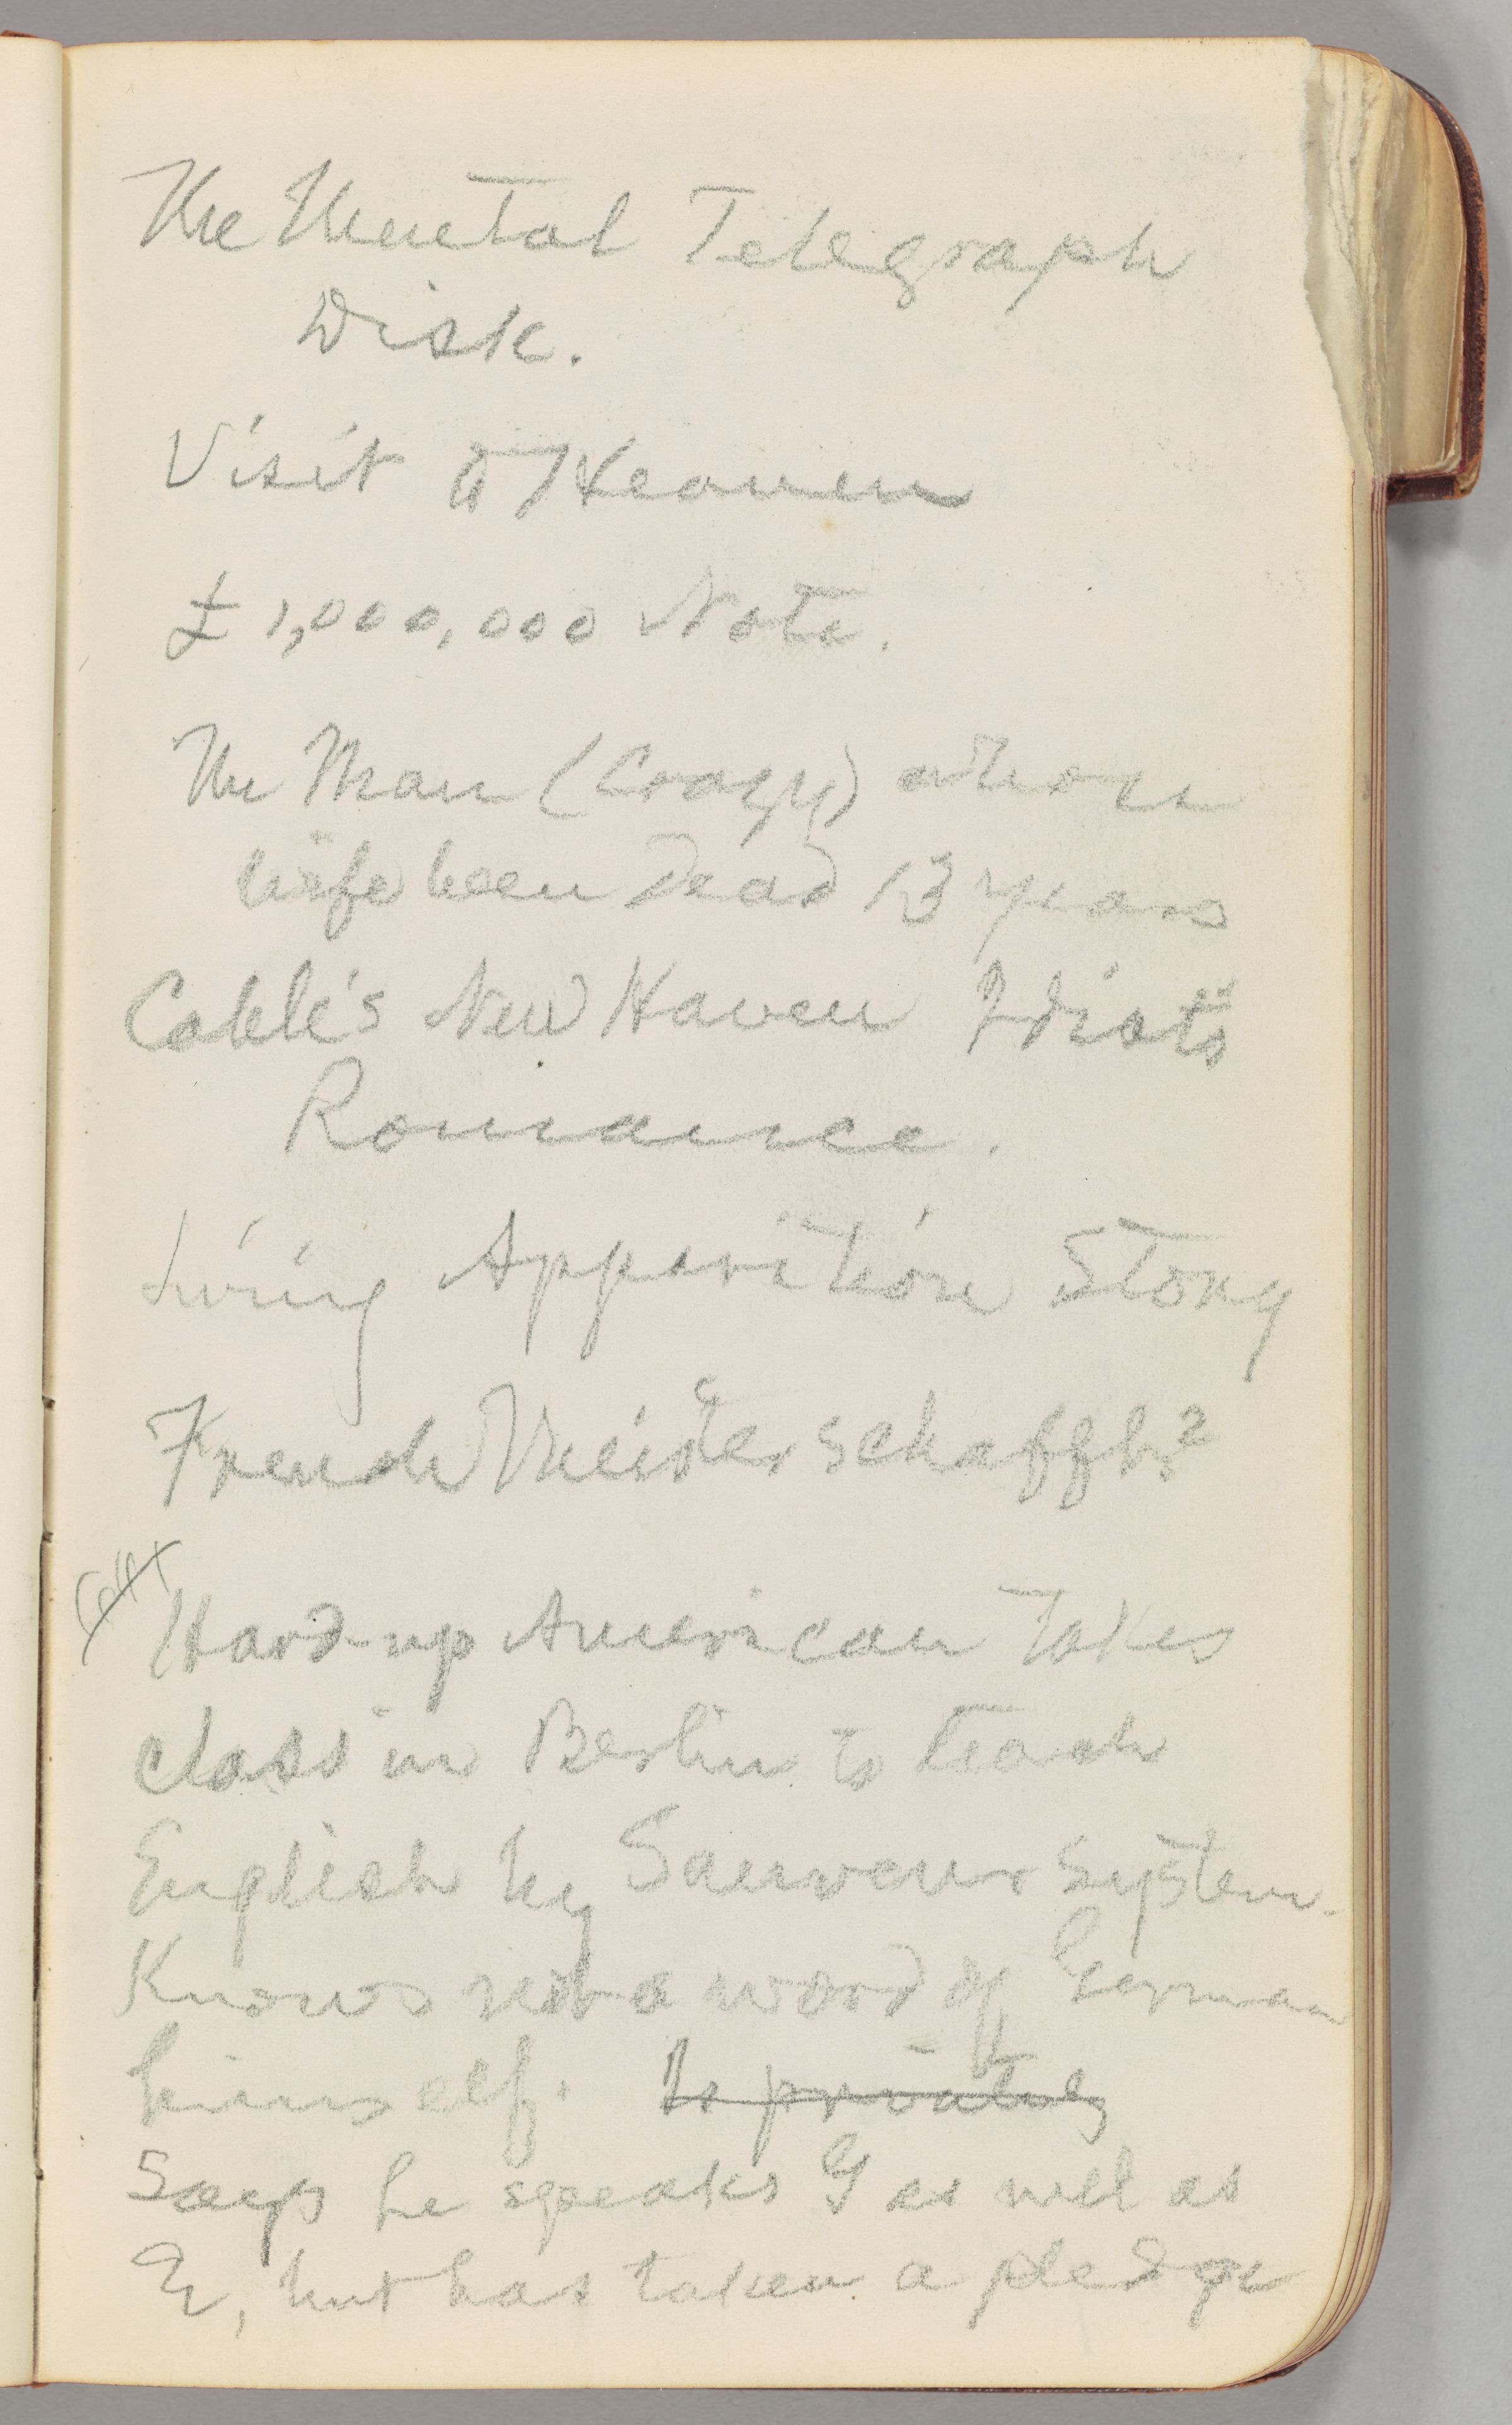 The Mental Telegraph
Disk.
Visit to Heaven
£1,000,000 Note.
The Man (Crazy) whose
wife been dead 13 years
Cable's New Haven Idiot's
Romance.
Living Apparition Story
French Meisterschaft?
Hard-up American takes
class in Berlin to teach
English by Sauveur System.
Knows not a word of German
himself. Is privately
Says he speaks G as well as
E, but has taken a pledge